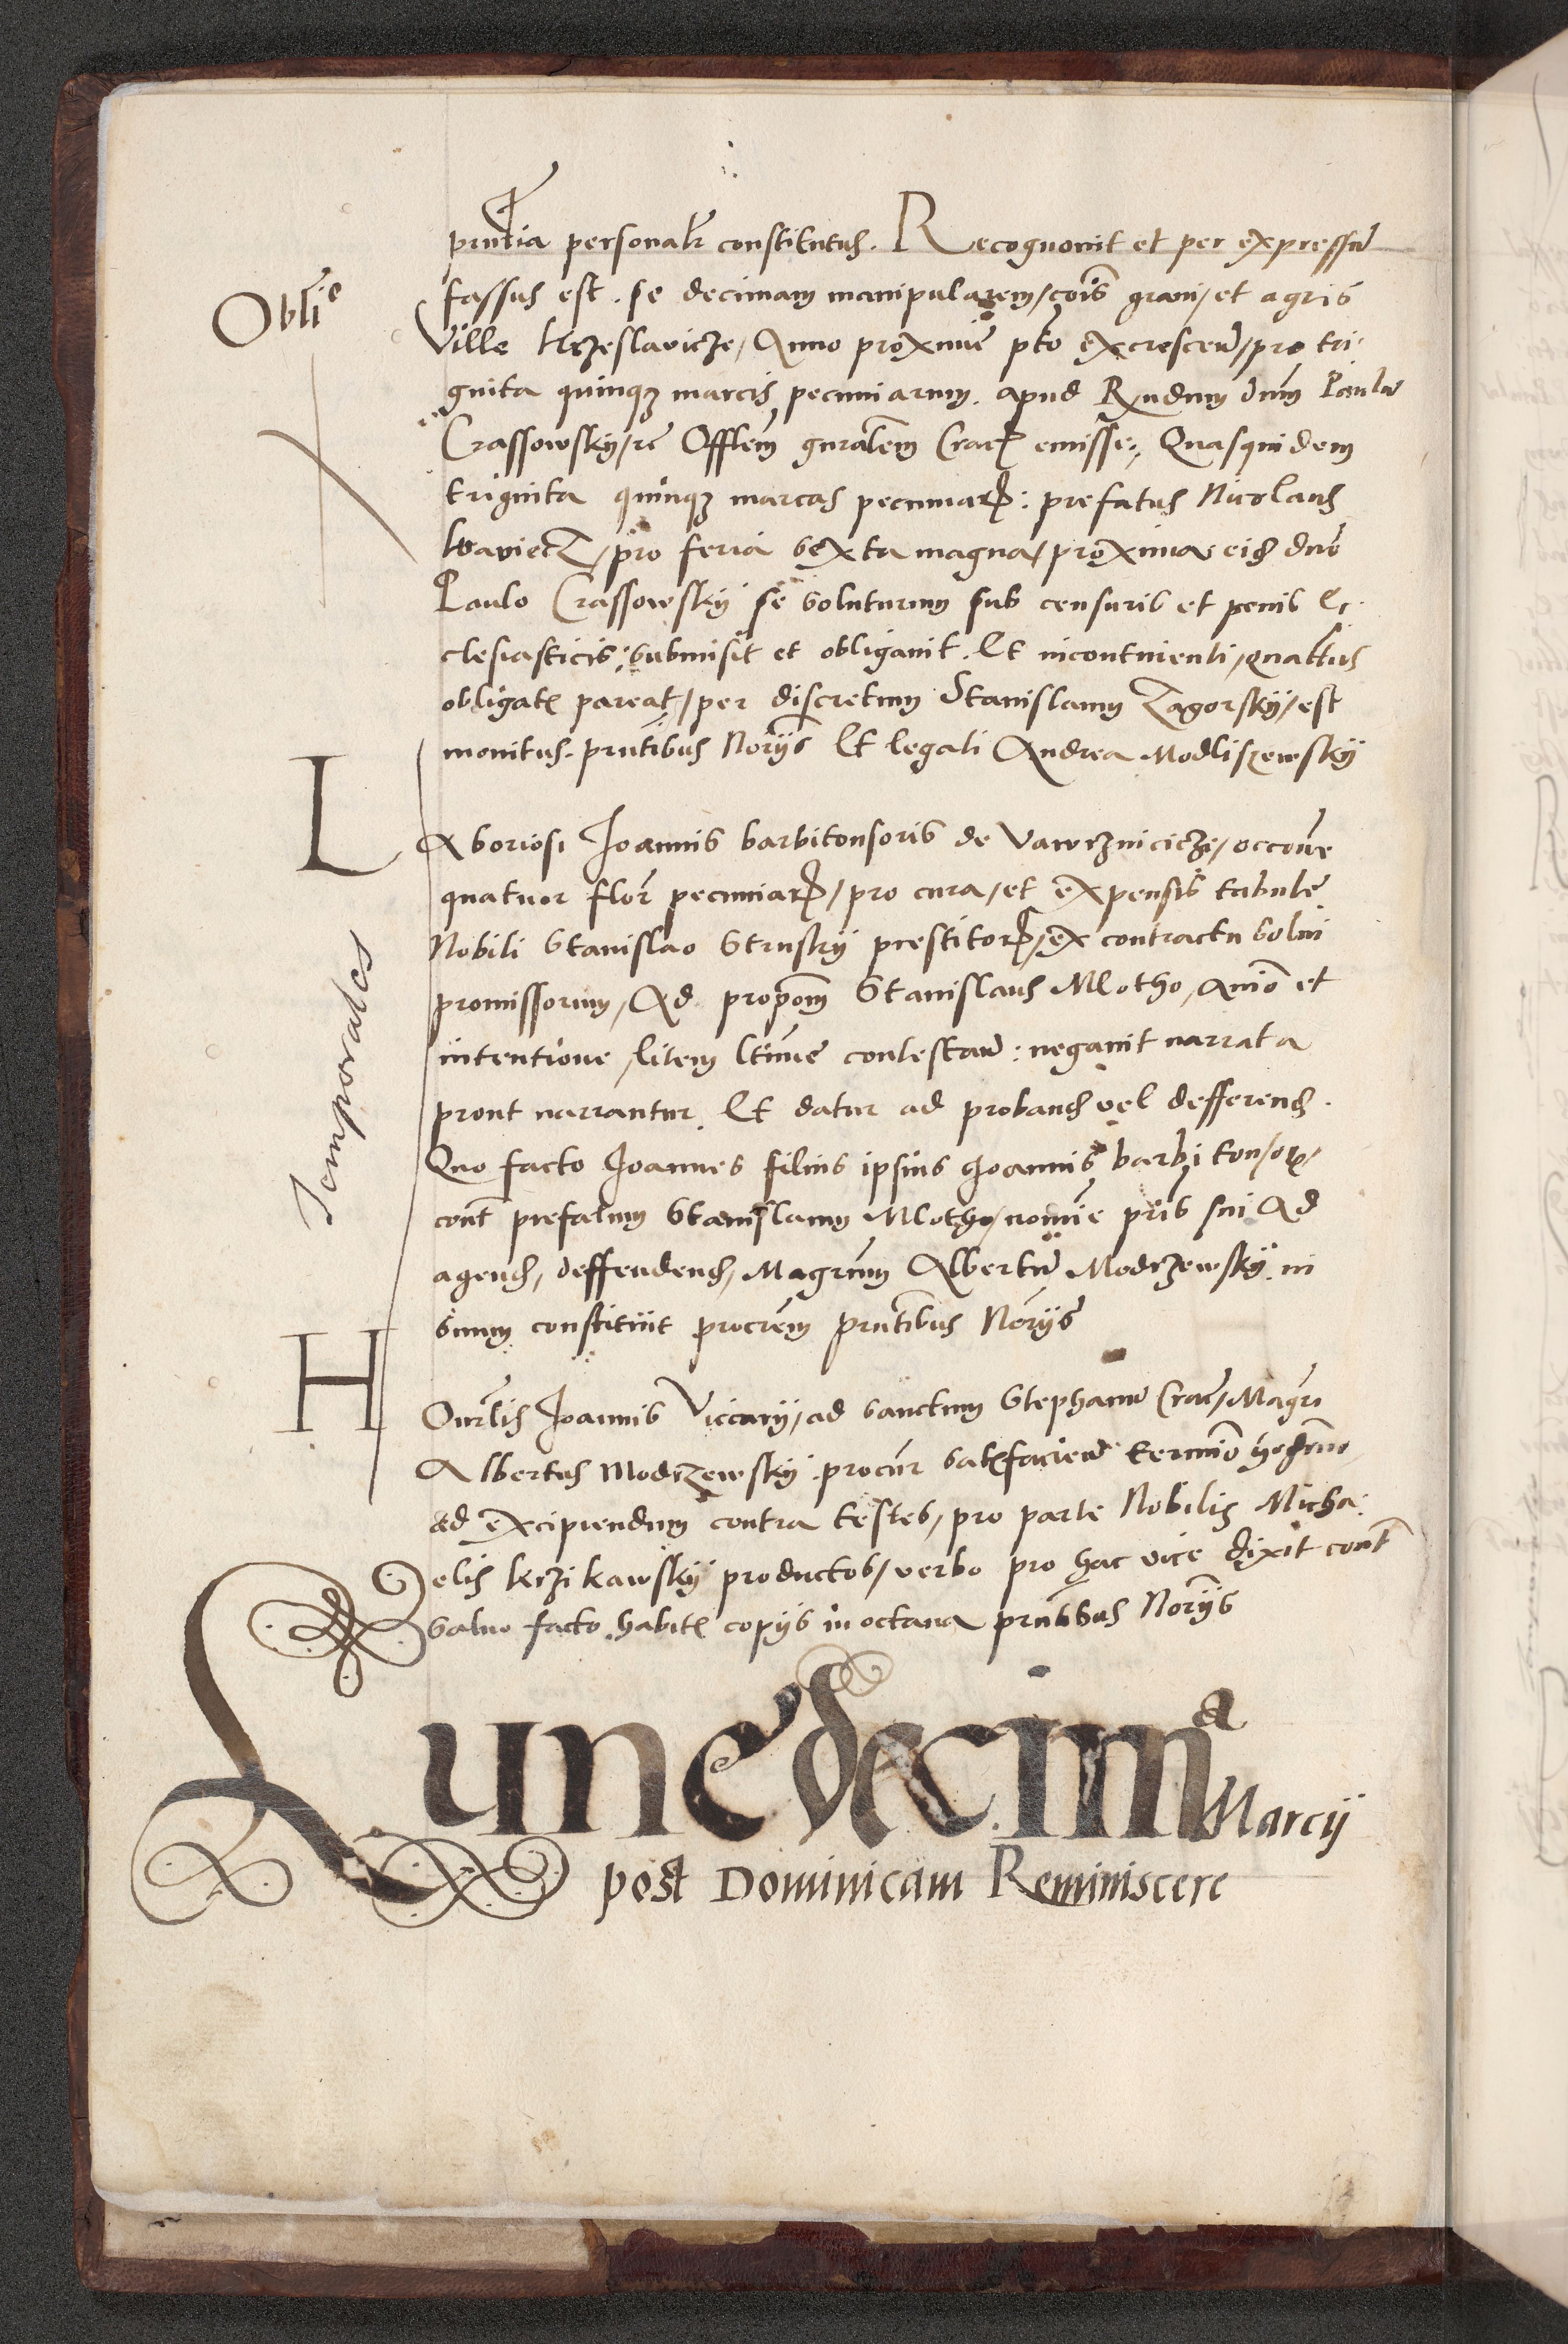 prntia personalr constitutus. Recognouit et per expressu
Oblie
fassus est. se decimam manipularem, cois grani, et agris
Ville Krzeslavicze, Anno proxime pto excrescen, pro tri
ginta quinqz marcis pecuniarum. apud Rndum dnm Paulu
Crassowsky, rc Offlem gnralem Crac emisse, Quasquidem
triginta quinqz marcas pecuniar: prefatus Nicolaus
pro feria sexta magna, proxima eid dno
Paulo Crassowsky se soluturum sub censuris et penis Ec
clesiasticis: submisit et obligauit. Et incontinenti, quattus
obligat pareat, per discretum Stanislaum Zagorsky, est
monitus. prntibus Norijs Et legali Andrea Modliszewsky
L
Aboriosi Joannis barbitonsoris de Vawrzinczicze, occone
quatuor flor pecuniar, pro cura, et expensis tabule
Nobili Stanislao Strusky prestitor, ex contractu solui
promissorum, Ad propom Stanislaus Mlotho, animo et
intentione, litem ltime contestan: negauit narrata
prout narrantur. Et datur ad proband vel defferend.
Temporales
Quo facto Joannes filius ipsius Joannis barbitonsor,
cont prefatum Stanislaum Mlotho, nomie pris sui Ad
agend, deffendend, Magrum Albertu Modrzewsky in
suum constituit procrem prntibus Norijs
H
Onrlis Joannis Viccarij, ad sanctum Stephanu Crac, Magri
Albertus Modrzewsky procur satisfacien termino hodierno
ad excipiendum contra testes, pro parte Nobilis Micha
elis Krzikawsky productos, verbo pro hac vice dixit cont
saluo facto habit copijs in octaua prntibus Norijs
Lune decima Marcij
post Dominicam Reminiscere